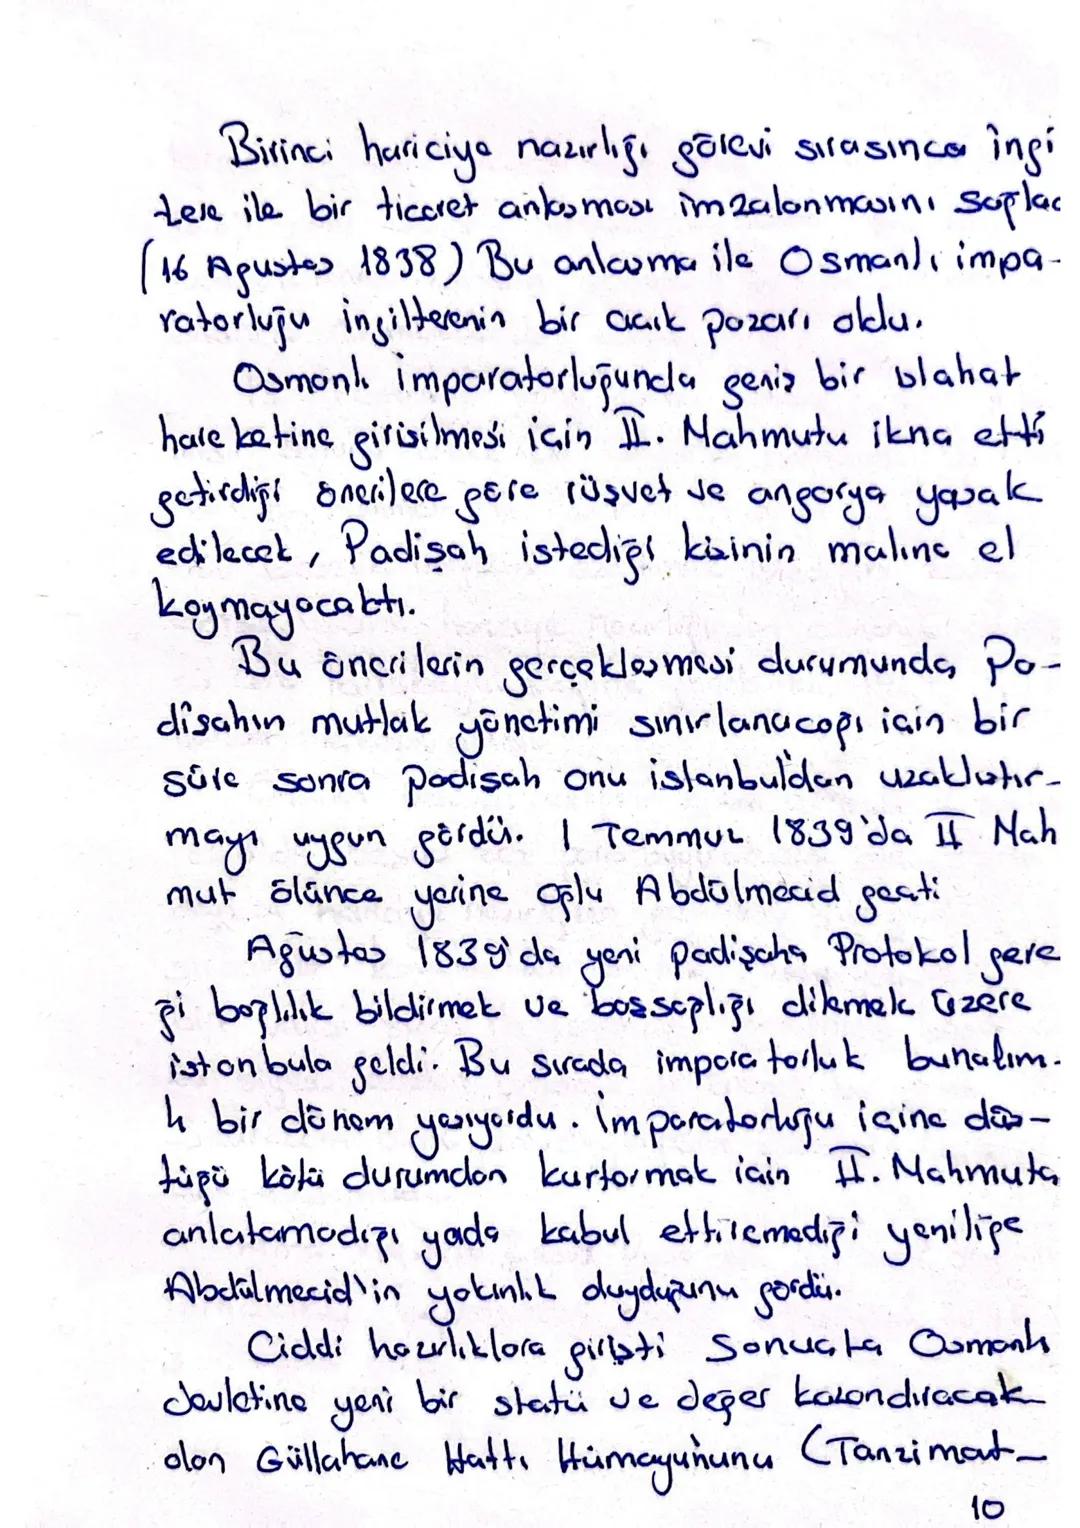 Birinci hariciye nazırlığı görevi sırasınca İngi
tere ile bir ticaret anlaşması imzalanmasını Sağlad
(16 Agustos 1838) Bu anlaşma ile Osmanlı impa-
ratorluğu İngilterenin bir acık pazarı oldu.
Osmanlı imparatorluğunda geniş bir ıslahat
hareketine girisilmesi için II. Mahmutu ikna etti
getirdiği önerilere göre rüşvet ve angarya yasak
edilecek, Padişah istediği kişinin malına el
koymayacaktı.
Bu önerilerin gerçekleşmesi durumunda, Pa-
dişahın mutlak yönetimi sınırlanacağı için bir
süre sonra padişah onu istanbul'dan uzaklaştır-
mayı uygun gördü. 1 Temmuz 1839'da II Mah
mut ölünce yerine oğlu Abdülmecid gecti
Ağustos 1839'da yeni padişaha Protokol gere
ği bağlılık bildirmek ve başsağlığı dilemek üzere
istanbula geldi. Bu sırada imparatorluk bunalım-
lı bir dönem yaşıyordu. imparatorluğu içine düş-
tüğü kötü durumdan kurtarmak icin II. Mahmuta
anlatamadığı yada kabul ettiremediği yeniliğe
Abdülmecid'in yakınlık duyduğunu gördü.
Ciddi hazırlıklara girişti Sonuçta Osmanlı
devletine yeni bir statü ve değer kazandıracak
olan Güllahane Hattı Hümayununu (Tanzimat-
10